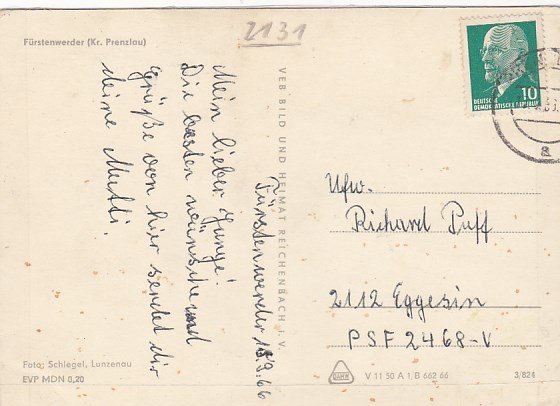 Fürstenwerder (Kr. Prenzlau)
2131
Fürstenwerder 18.9.66
Mein lieber Junge!
Die besten Wünsche und
Grüße von hier sendet dir
deine Mutti.
Foto: Schlegel, Lunzenau
EVP MDN 0,20
VEB BILD UND HEIMAT REICHENBACH I. V.
10
DEUTSCHE
DEMOKRATISCHE REPUBLIK
a
Ufw.
Richard Puff
2112 Eggesin
PSF 2468-V
V 11 50 A 1 B 662 66
3/824